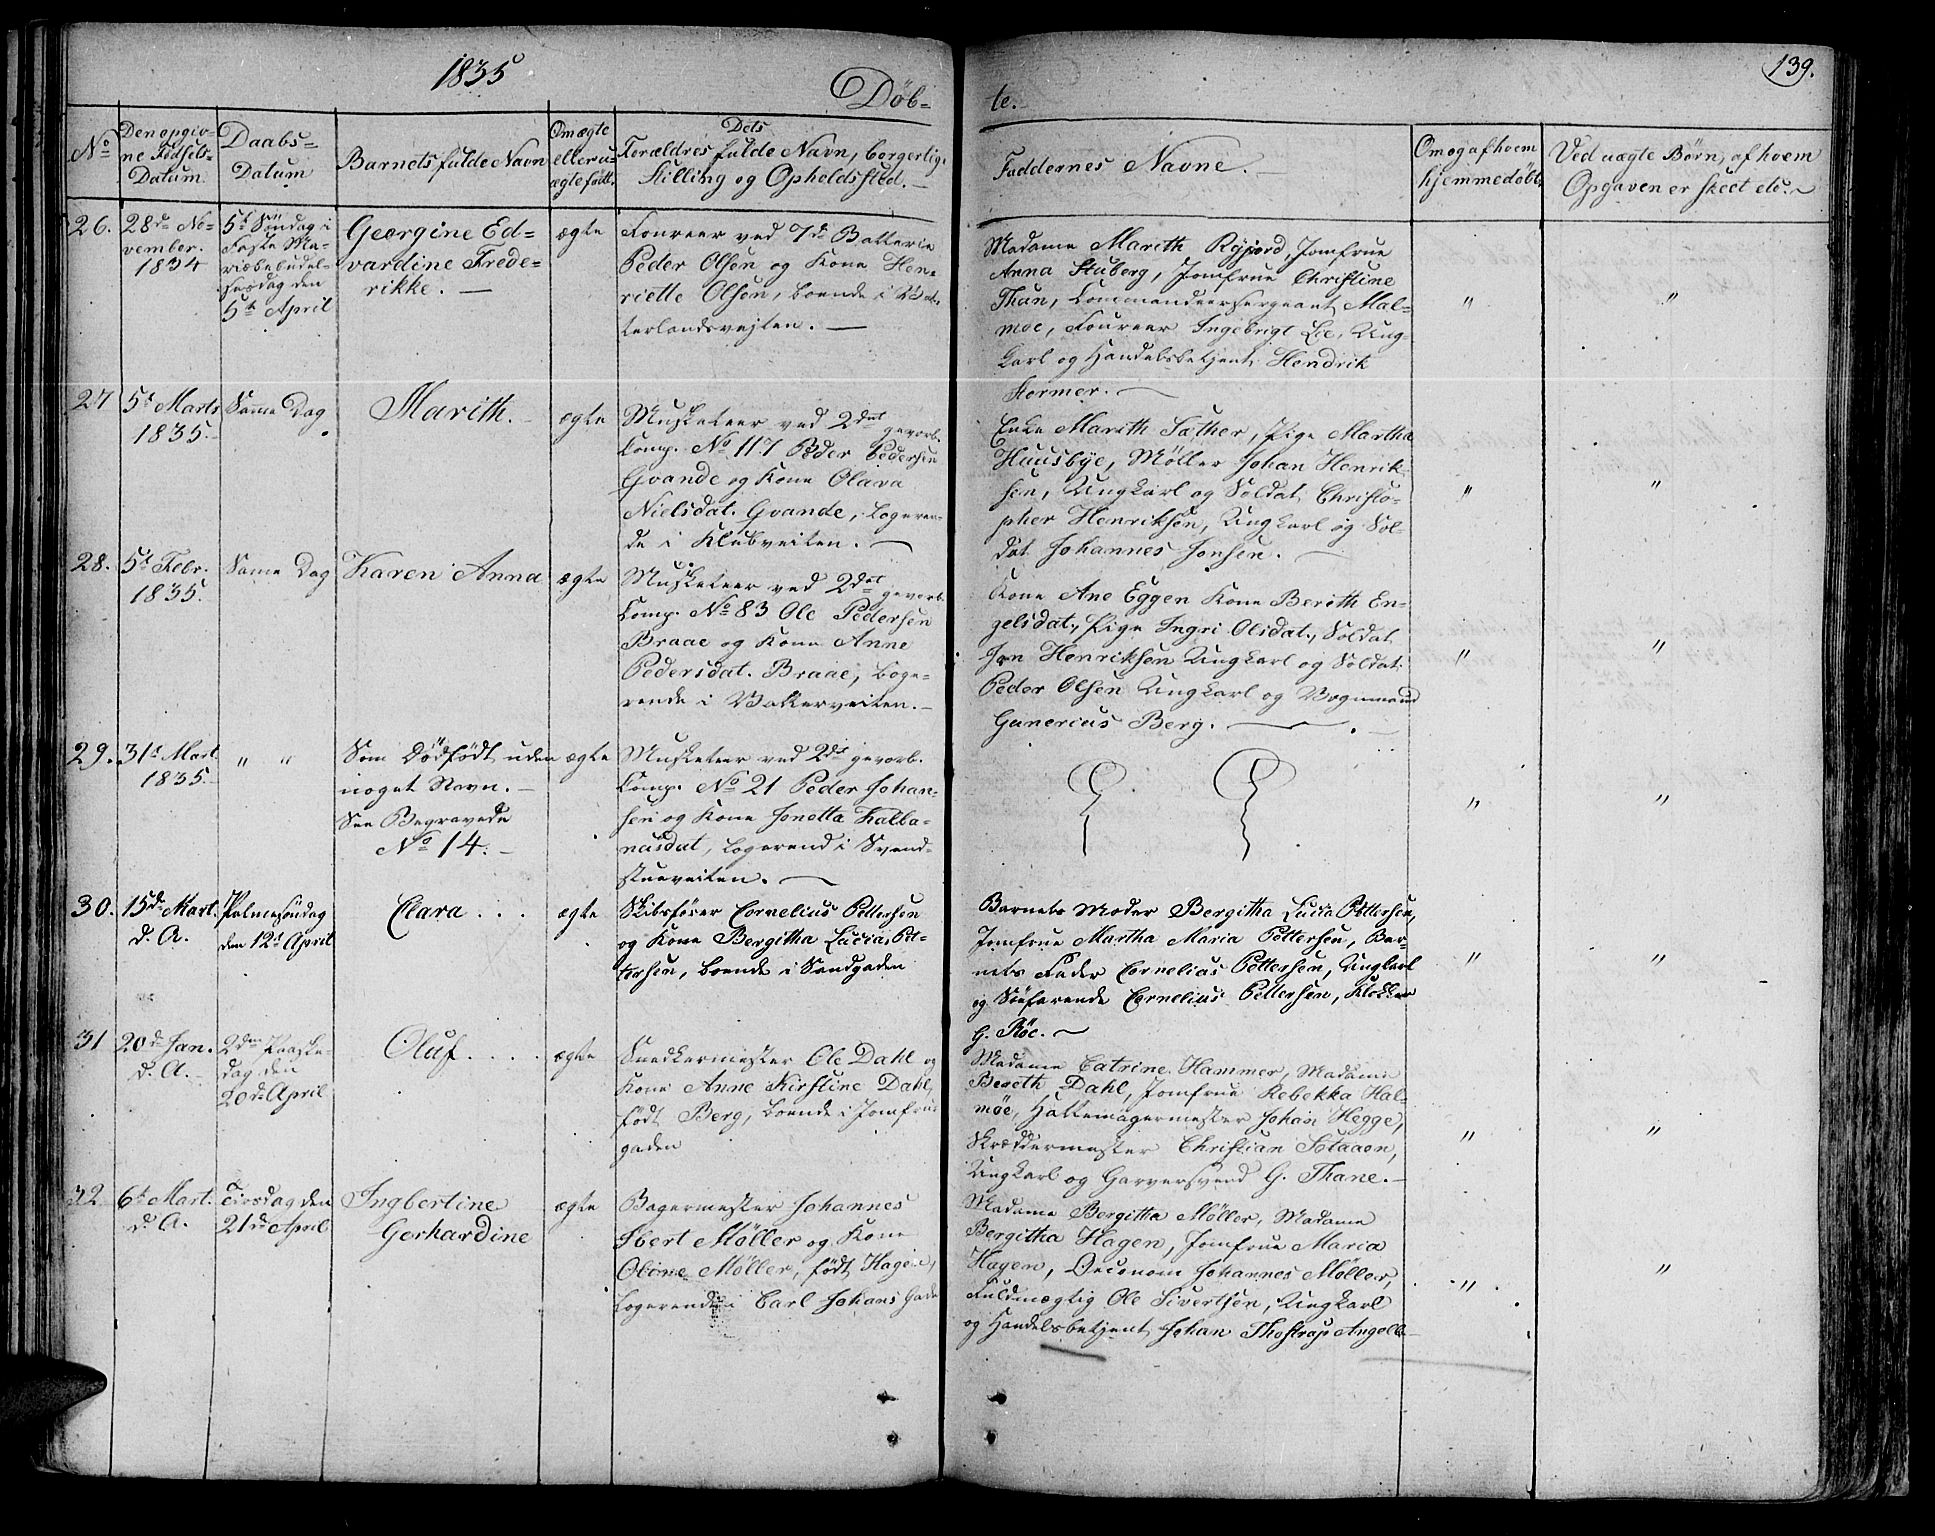 1835
Döb=
te.
139.
No
Den opgiv=
ne Födsels-
Datum
Daabs=
Datum
Barnets fulde Navn
Om ægte
eller u=
ægte födt.
Dets
Forældres fulde Navn, borgerlige
Stilling og Opholdssted.
Faddernes Navne.
Om og af hvem
hjemmedöbt
Ved uægte Börn, af hvem
Opgaven er skeet etc.
26.
28de No=
vember.
1834
5te Söndag i
Faste Ma=
riæbebudel=
sesdag den
5te April
Georgine Ed=
vardine Frede=
rikke.
ægte
Foureer ved 7de Batterie
Peder Olsen og Kone Hen=
riette Olsen, boende i Va=
terlandsvejten.
Madame Marith Ryjord, Jomfrue
Anna Stuberg, Jomfrue Christine
Thun, Commandeersergeant Mal=
moe, Foureer Ingebrigt Lie, Ung=
karl og Handelsbetjent Hendrik
Stormer.
"
"
27
5te Marts
1835.
Samme Dag
Marith.
ægte
Musketeer ved 2det gevorb.
Comp. No 117 Peder Pedersen
Gvande og Kone Olava
Nielsdat. Gvande, logeren=
de i Klubveiten.
Enke Marith Sæther, Pige Martha
Huusbye, Møller Johan Henrik=
sen, Ungkarl og Soldat Christo=
pher Henriksen, Ungkarl og Sol=
dat Johannes Jonsen.
"
"
28.
5te Febr.
1835.
Samme Dag
Karen Anna
ægte
Musketeer ved 2det gevorb.
Comp. No 83 Ole Pedersen
Braae og Kone Anne
Pedersdat. Braae, loge=
rende i Vollerveiten.
Kone Ane Eggen Kone Berith En=
gelsdat., Pige Ingri Olsdat., Soldat
Jon Henriksen Ungkarl og Soldat
Peder Olsen Ungkarl og Vognmand
Gunerius Berg.
"
"
29.
31te Mart
1835.
" "
Som Dödfödt uden
noget Navn.
See Begravede
No 14.
ægte
Musketeer ved 2det gevorb.
Comp. No 21 Peder Johan=
sen og Kone Jonetta Halba=
nusdat, logerend i Svend=
stueveiten.
"
"
30.
15de Mart.
d. A.
Palmesöndag
den 12te April
Clara
ægte
Skibsförer Cornelius Pettersen
og Kone Bergitha Lucia Pet=
tersen, boende i Sandgaden
Barnets Moder Bergitha Lucia Pettersen,
Jomfrue Martha Maria Pettersen, Bar=
nets Fader Cornelius Pettersen, Ungkarl
og Söefarende Cornelius Pettersen, Klokker
G. Röe.
"
"
31
20de Jan.
d. A.
2den Paaske=
dag den
20de April
Oluf
ægte
Snedkermester Ole Dahl og
Kone Anne Kirstine Dahl,
födt Berg, boende i Jomfrue
gaden
Madame Catrine Hammer, Madame
Bereth Dahl, Jomfrue Rebekka Hal=
möe, Hattemagermester Johan Hegge,
Skræddermester Christian Staaen,
Ungkarl og Garversvend G. Thane.
"
"
32
6te Mart.
d. A.
Tirsdag den
21de April
Ingbertine
Gerhardine
ægte
Bagermester Johannes
Ibert Møller og Kone
Oline Møller, födt Hagen,
Logerende i Carl Johans Gade
Madame Bergitha Møller, Madame
Bergitha Hagen, Jomfrue Maria
Hagen, Oeconom Johannes Møller,
Fuldmægtig Ole Sivertsen, Ungkarl
og Handelsbetjent Johan Thostrup Angell
"
"